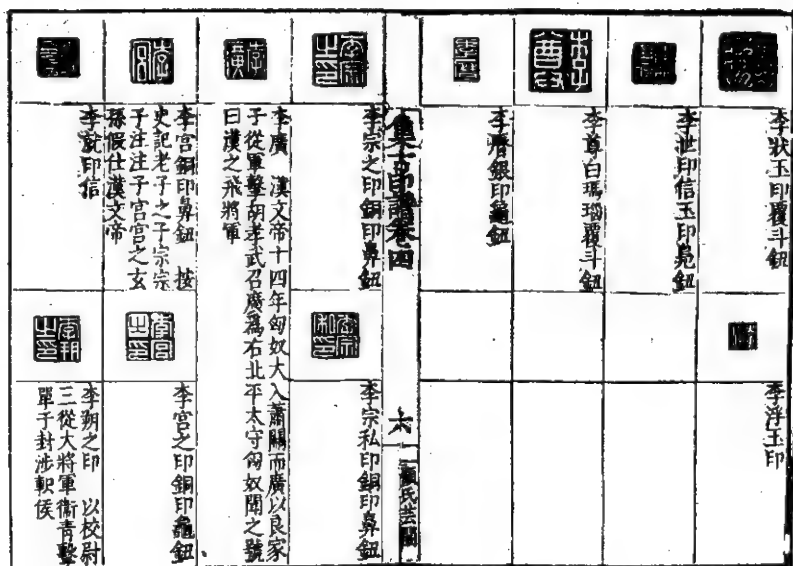 李狀玉印覆斗鈕
李浮玉印
李泄印信玉印鳧鈕
李尊白瑪瑙覆斗鈕
李膺銀印龜鈕
集古印譜卷四
六
顧氏芸閣
李宗之印銅印鼻鈕
李宗私印銅印鼻鈕
李廣　漢文帝十四年匈奴大入蕭關而廣以良家
子從軍擊胡孝武召廣爲右北平太守匈奴聞之號
曰漢之飛將軍
李宮銅印鼻鈕　按
史記老子之子宗宗
子注注子宮宮之玄
孫假仕漢文帝
李宮之印銅印龜鈕
李就印信
李朔之印　以校尉
三從大將軍衞青擊
單于封涉軹侯